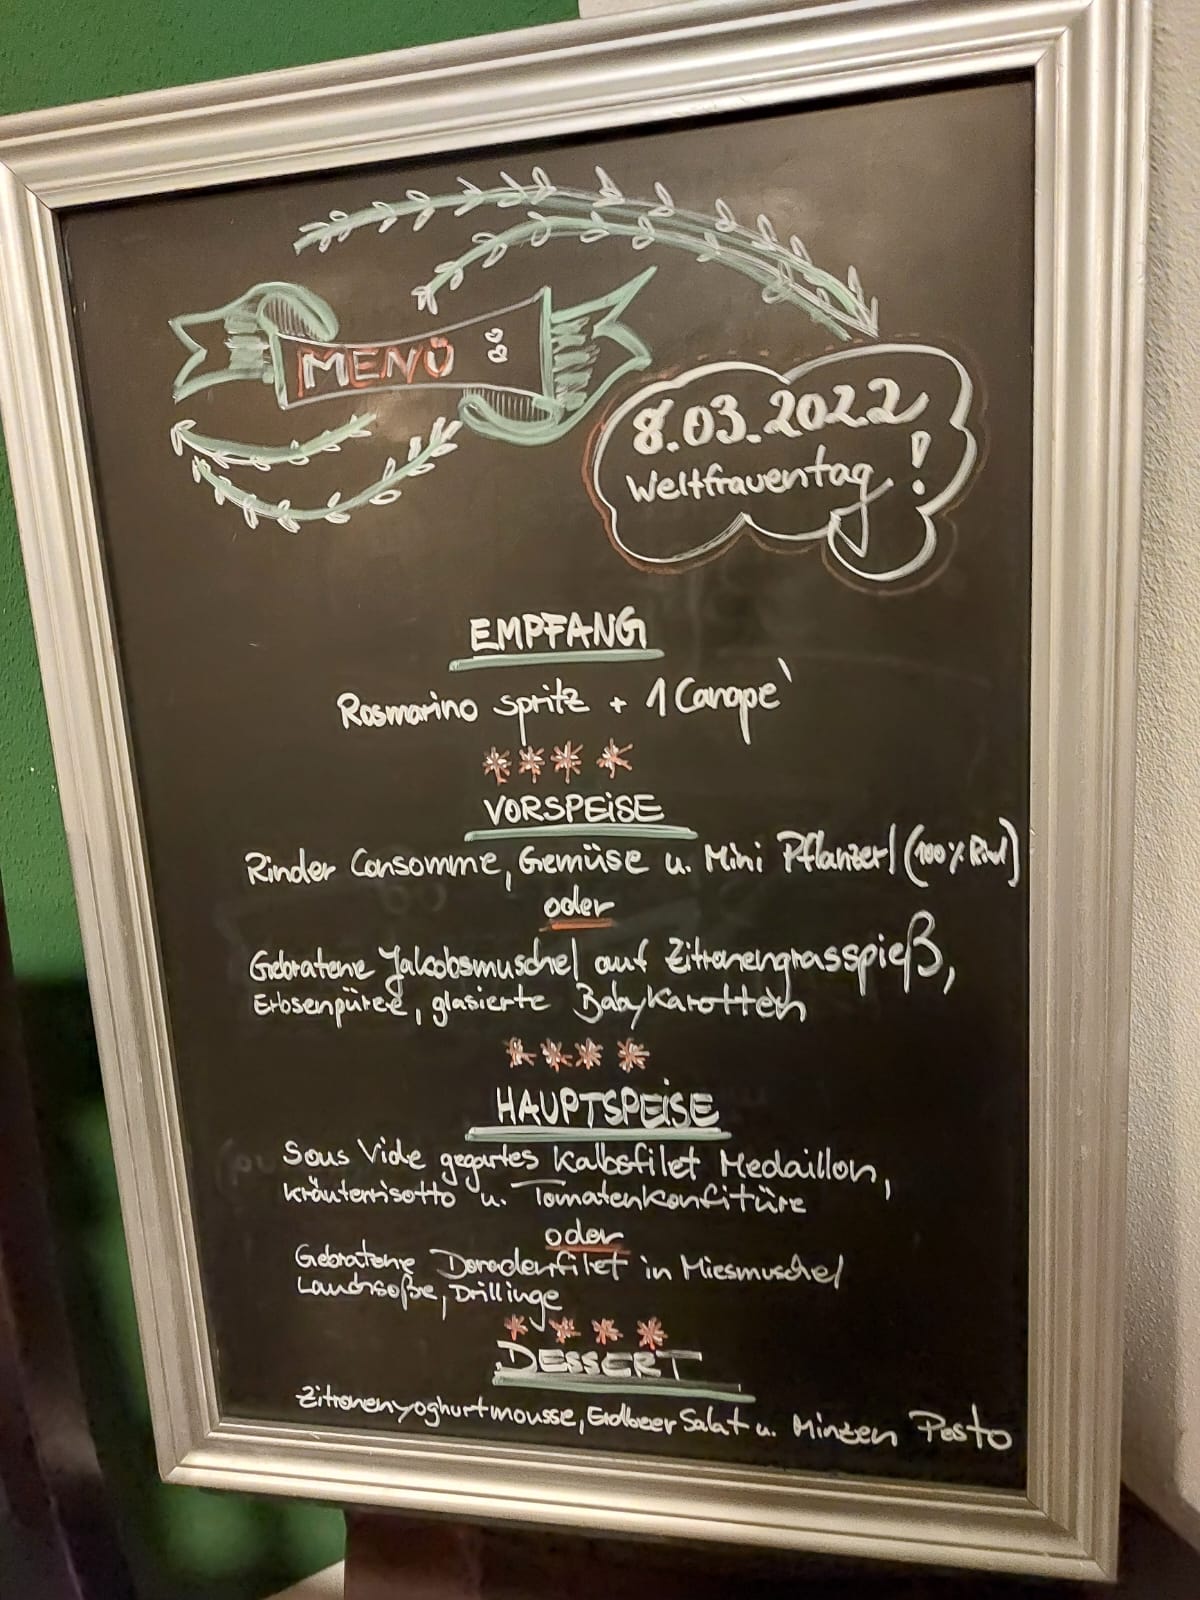 MENÜ
8.03.2022
Weltfrauentag!
EMPFANG
Rosmarino spritz + 1 Canapè
****
VORSPEiSE
Rinder Consomme, Gemüse u. Mini Pflanzerl (100% Rind)
oder
Gebratene Jakobsmuschel auf Zitronengrasspieß,
Erbsenpüree, glasierte BabyKarotten
****
HAUPTSPEiSE
Sous Vide gegartes Kalbsfilet Medaillon,
Kräuterrisotto u. Tomatenkonfitüre
oder
Gebratene Doradenfilet in Miesmuschel
Lauchsoße, Drillinge
****
DESSERT
Zitronenyoghurtmousse, Erdbeer Salat u. Minzen Pesto